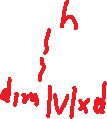 h
dim |V|xd